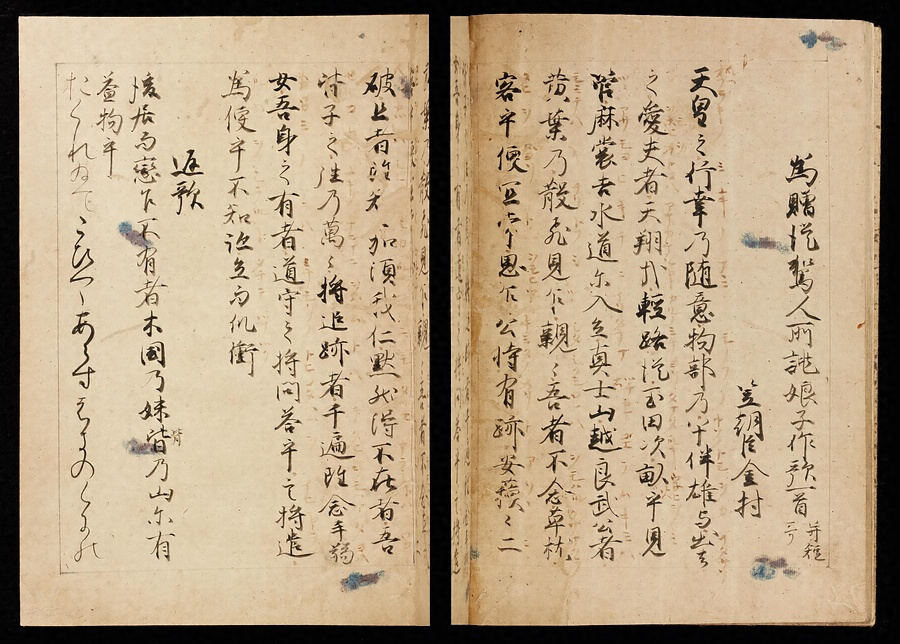 為贈従駕人所誂娘子作歌一首 并短
笠朝臣金村
天皇之行幸乃随意物部乃八十伴雄与出去
之愛夫者天翔哉軽路従玉田次畝乎見
管麻裳吉水道尓入立真士山越良武公者
黄葉乃散飛見乍親々吾者不念草枕
客乎便宜常思乍公将有跡安蘇々二
破且者雖知加須我仁黙然得不在者吾
背子之徃乃萬々将追跡者千遍雖念手弱
女吾身之有者道守之将問答乎言将遣
為便乎不知跡立而爪衝
返歌
後居而戀乍不有者木國乃妹皆乃山尓有
益物乎
おくれゐてこひつゝあらすはきのくにの